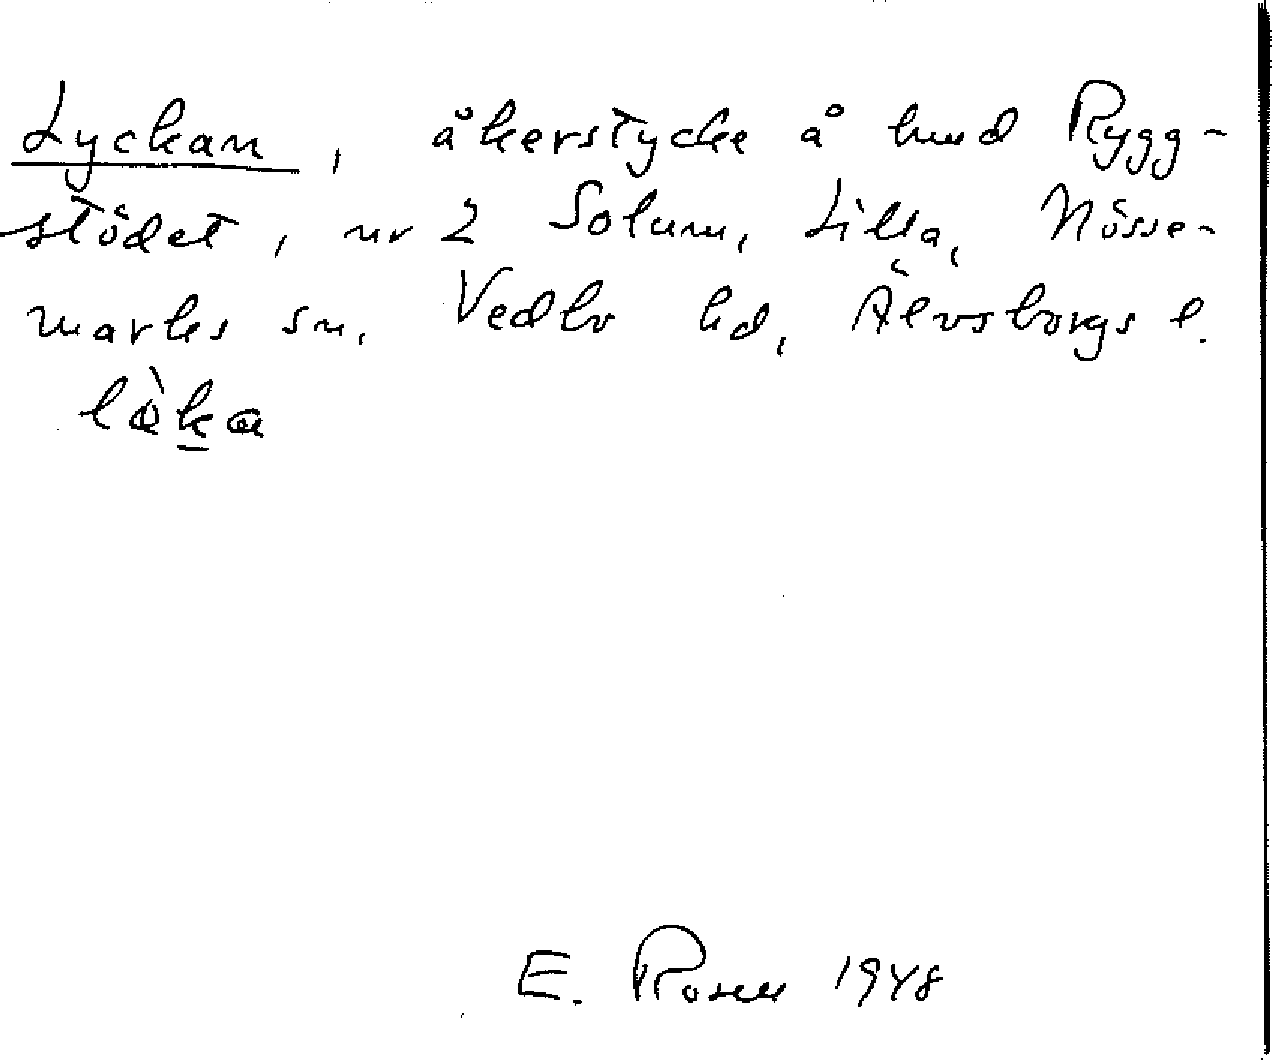 Lyckan, åkerstycke å hmd Rygg-
stödet, nr 2 Solum, Lilla, Nösse-
marks sn, Vedbo hd, Älvsborgs l.
E. Rosen 1948